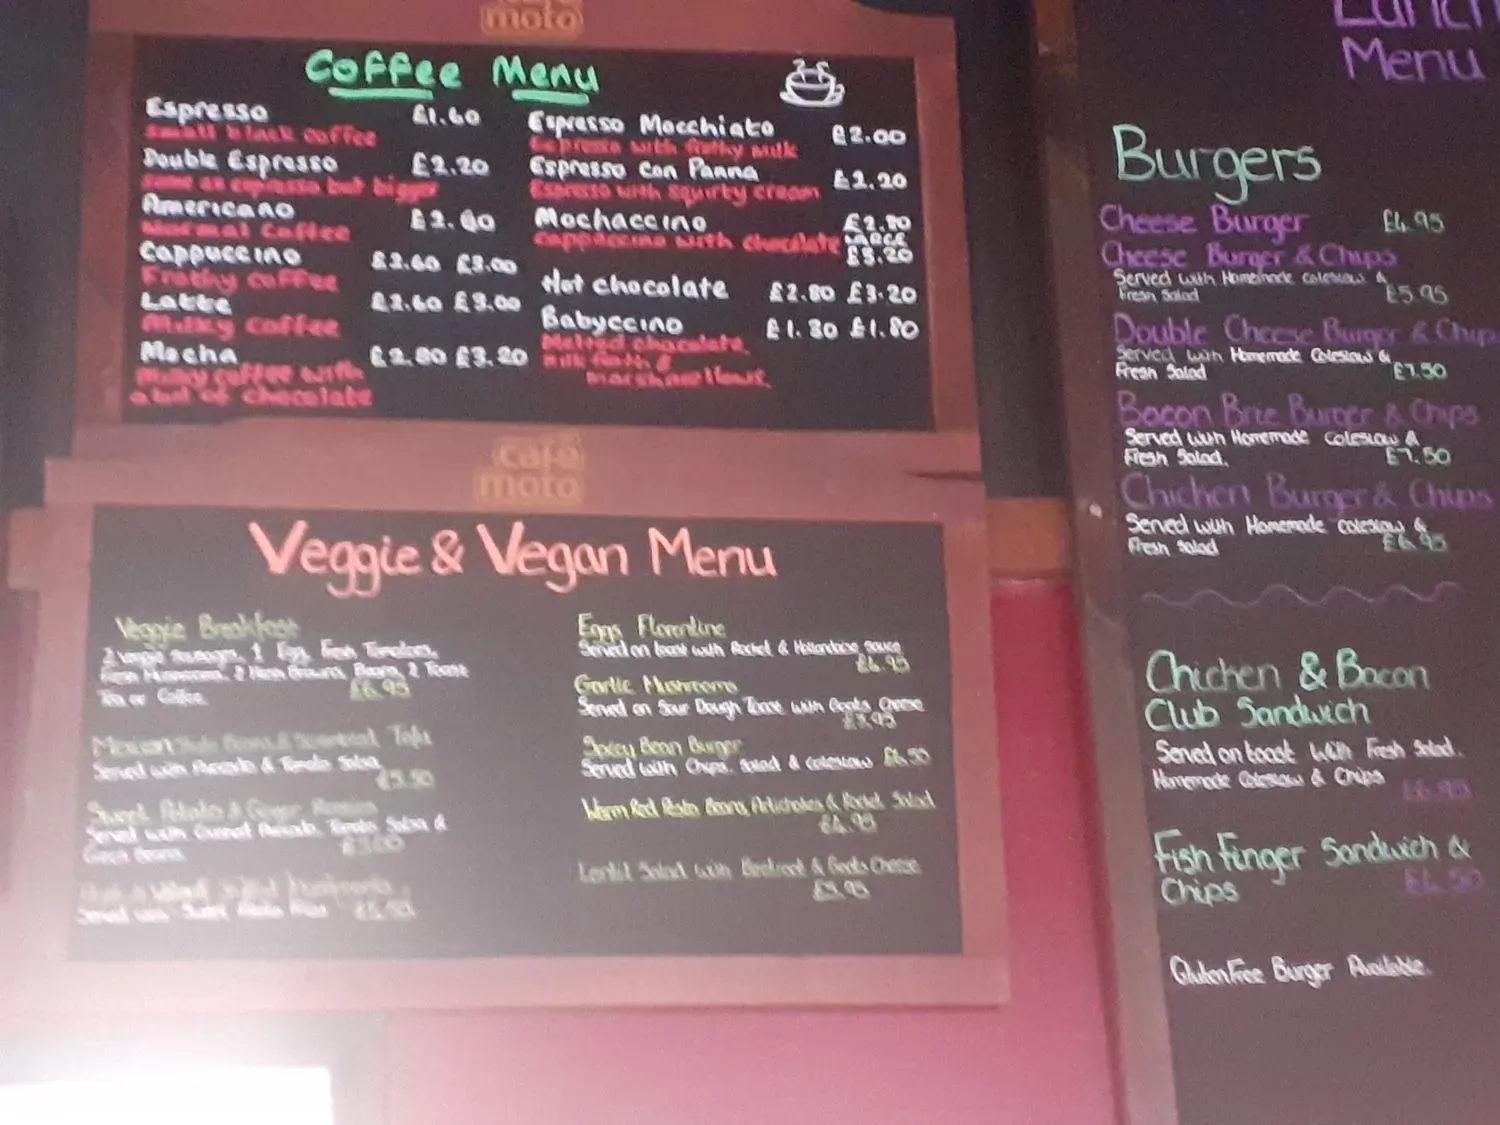 café
moto
Coffee Menu
Espresso £1.60
small black coffee
Double Espresso £2.20
same as espresso but bigger
Americano £2.60
Normal Coffee
Cappuccino £2.60 £3.00
Frothy coffee
Latte £2.60 £3.00
Milky coffee
Mocha £2.80 £3.20
Milky coffee with
a bit of chocolate
Espresso Macchiato £2.00
Espresso with frothy milk
Espresso con Panna £2.20
Espresso with squirty cream
Mochaccino £2.80
cappuccino with chocolate LARGE
£3.20
Hot chocolate £2.80 £3.20
Babyccino £1.30 £1.80
Melted chocolate,
milk froth &
marshmallows.
café
moto
Veggie & Vegan Menu
Veggie Breakfast
2 veggie sausages, 1 Egg, Fresh Tomatoes,
Fresh Mushrooms, 2 Hash Browns, Beans, 2 Toast
Tea or Coffee. £6.95
Mexican Style Beans & Scrambled Tofu
Served with Avocado & Tomato Salsa
£5.50
Sweet Potato & Ginger
Served with Avocado, Tomato Salsa &
Green Beans.
Served with Sweet Potato Fries
Eggs Florentine
Served on toast with Rocket & Hollandaise sauce
£4.95
Garlic Mushrooms
Served on Sour Dough Toast with Goats Cheese
£3.95
Spicy Bean Burger
Served with Chips, salad & coleslaw £6.50
Warm Red Pesto Beans, Artichokes & Rocket Salad
£4.95
Lentil Salad with Beetroot & Goats Cheese
£5.95
Lunch
Menu
Burgers
Cheese Burger £4.95
Cheese Burger & Chips
Served with Homemade coleslaw &
Fresh Salad £5.95
Double Cheese Burger & Chips
Served with Homemade Coleslaw &
Fresh Salad £7.50
Bacon Brie Burger & Chips
Served with Homemade Coleslaw &
Fresh Salad. £7.50
Chicken Burger & Chips
Served with Homemade coleslaw &
Fresh Salad £6.95
Chicken & Bacon
Club Sandwich
Served on toast with Fresh Salad.
Homemade Coleslaw & Chips £6.95
Fish Finger Sandwich &
Chips £4.50
Gluten Free Burger Available.